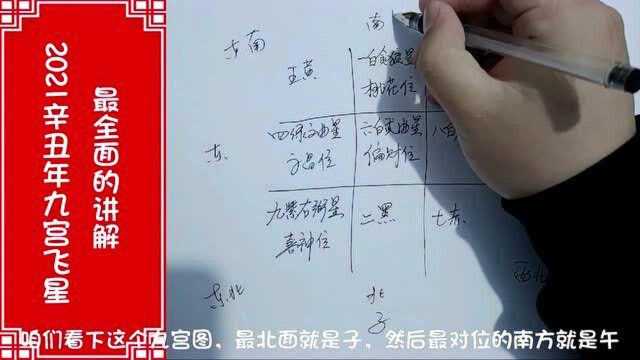 2021辛丑年九宫飞星
最全面的讲解
东南
南
五黄
一白贪狼星
桃花位
东
四绿文曲星
文昌位
六白武曲星
偏财位
八白
九紫右弼星
喜神位
二黑
七赤
东北
北
子
西北
咱们看下这个九宫图，最北面就是子，然后最对位的南方就是午